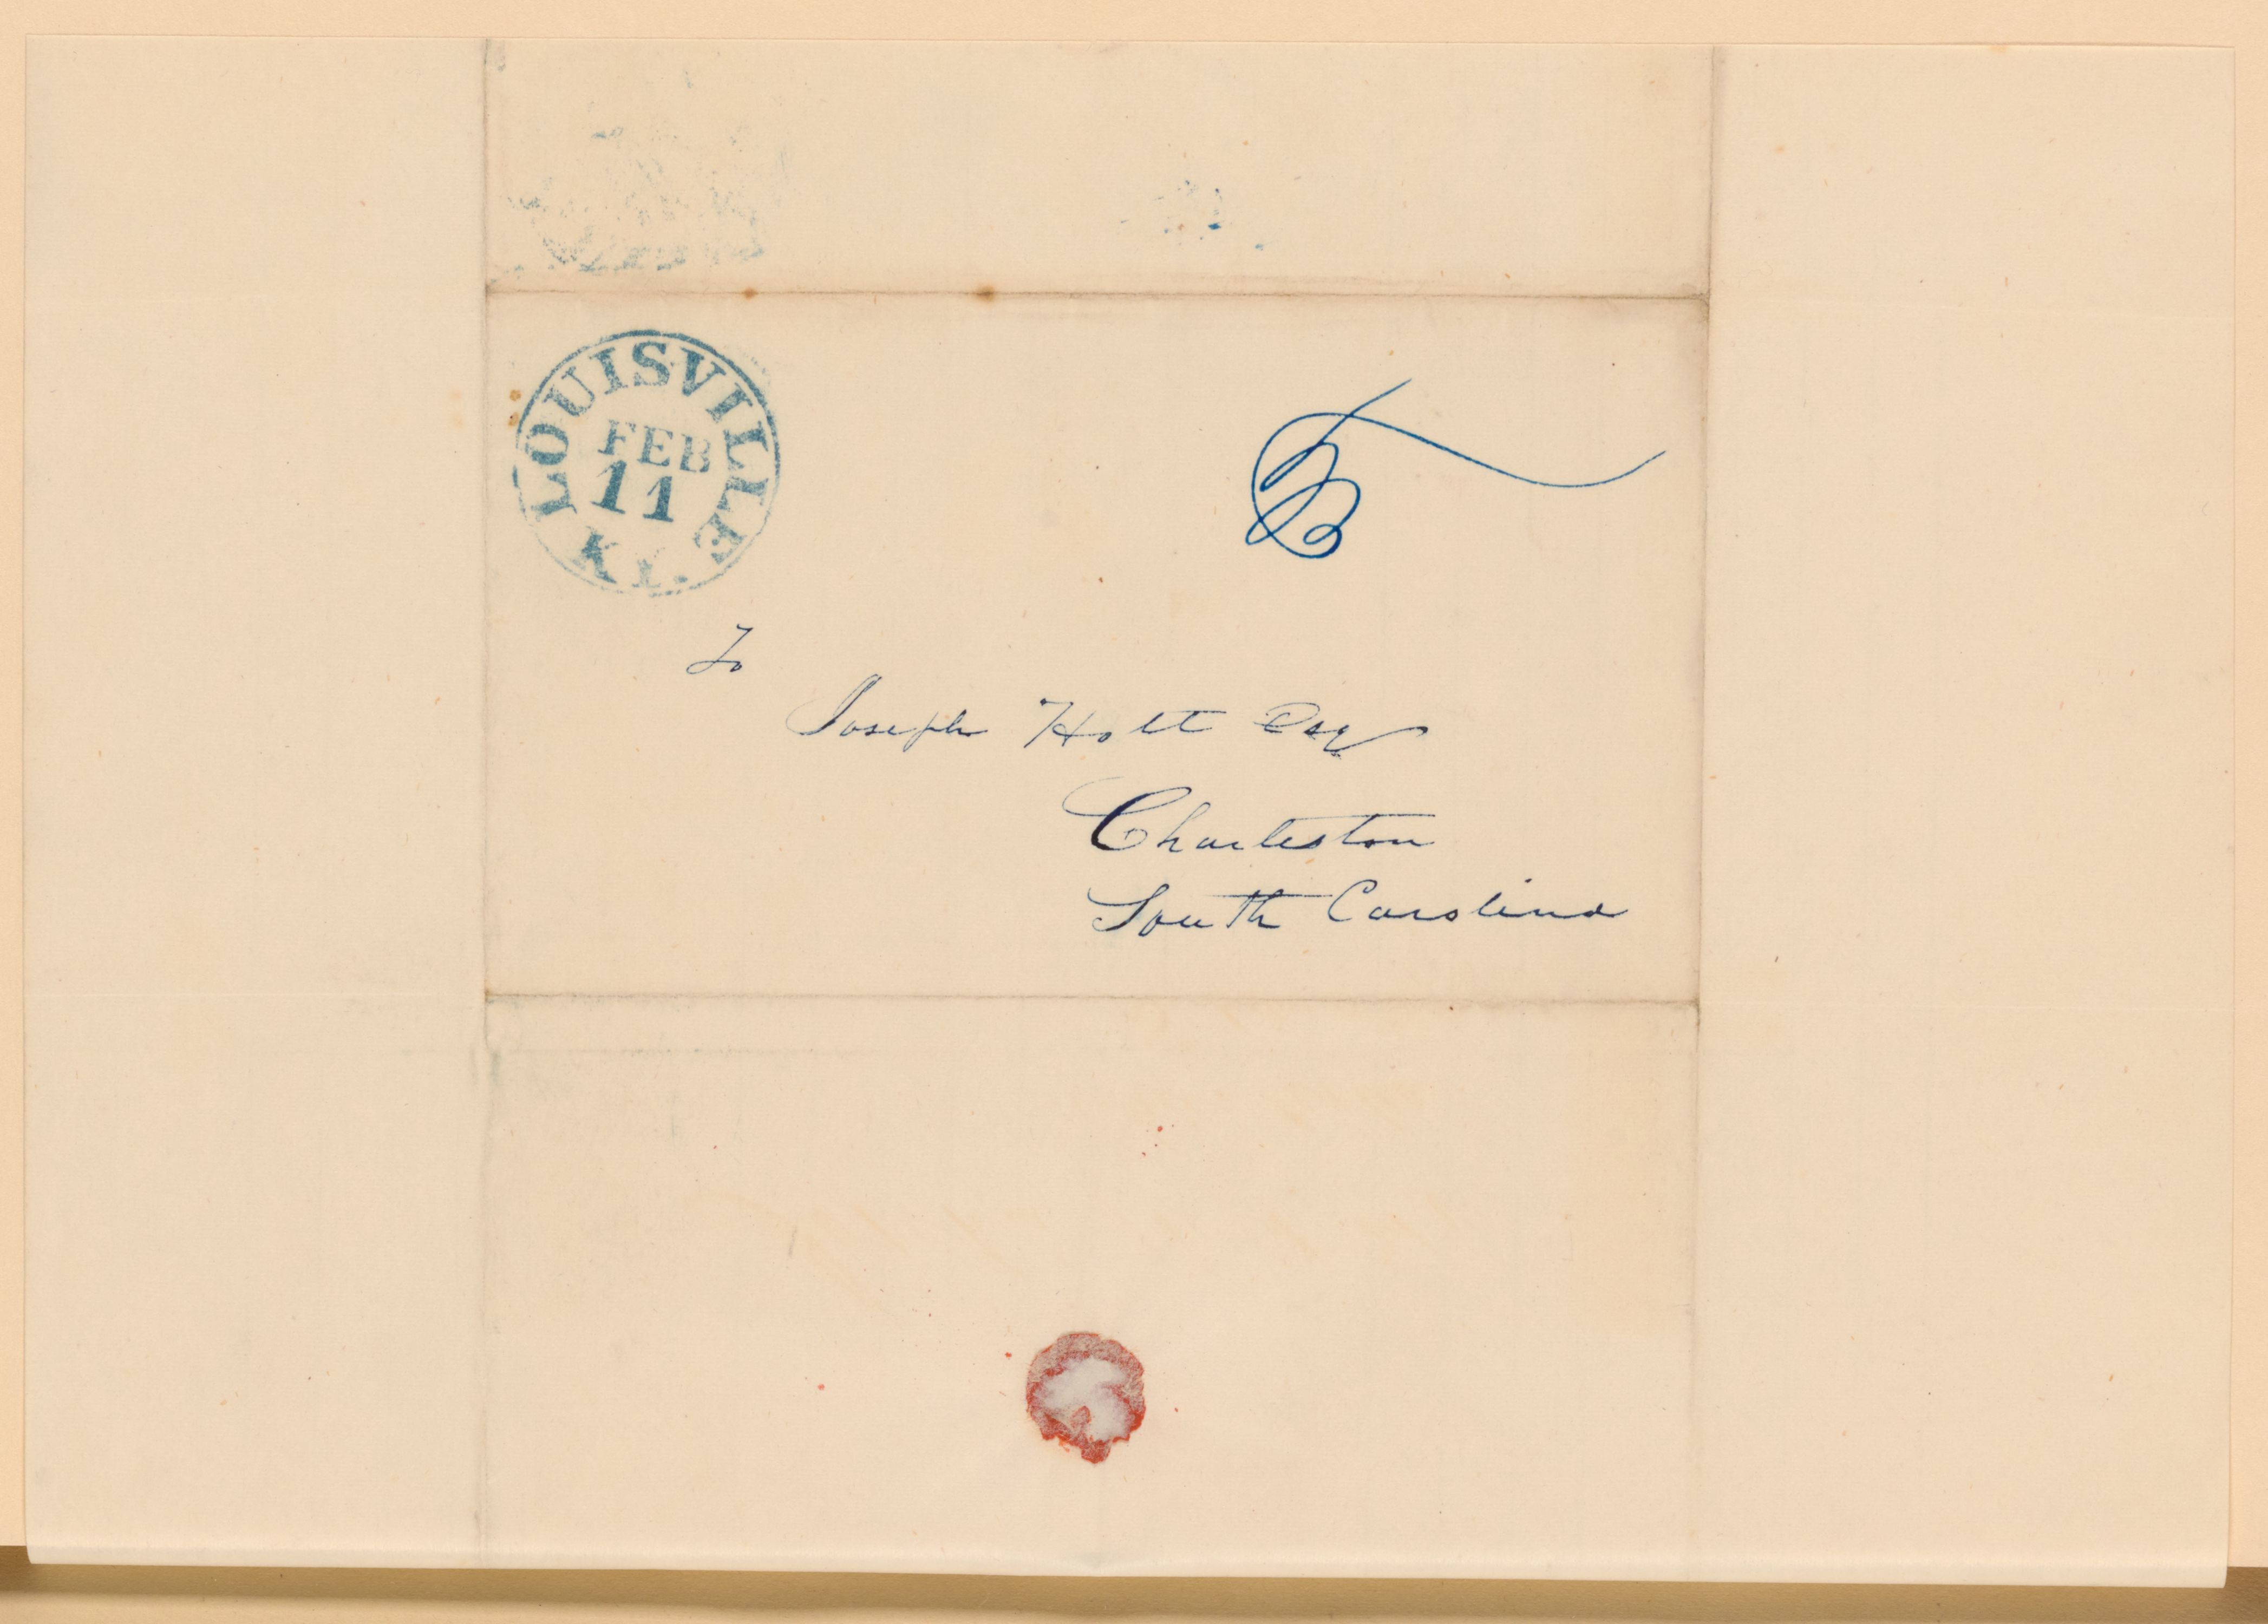 LOUISVILLE KY.
FEB
11
To
Joseph Holt Esq
Charleston
South Carolina